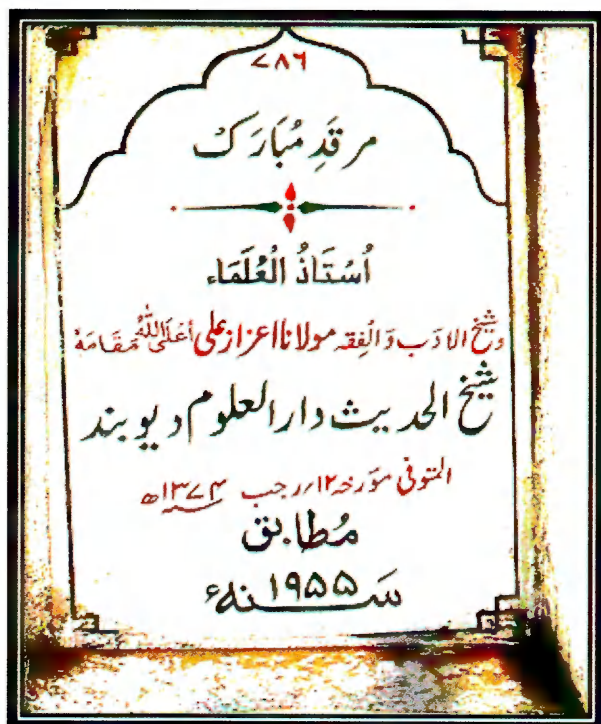 ۷۸۶
مرقدِ مُبَارَکْ
اُسْتَاذُ الْعُلَمَاء
وشیخ الادَب وَالْفِقہ مولانا اعزاز علی أعْلَی اللّٰهُ مَقَامَهٗ
شیخ الحدیث دار العلوم دیوبند
المتوفی مؤرخہ ۱۲/رجب ۱۳۷۴ھ
مُطابق
سَنہ ۱۹۵۵ء